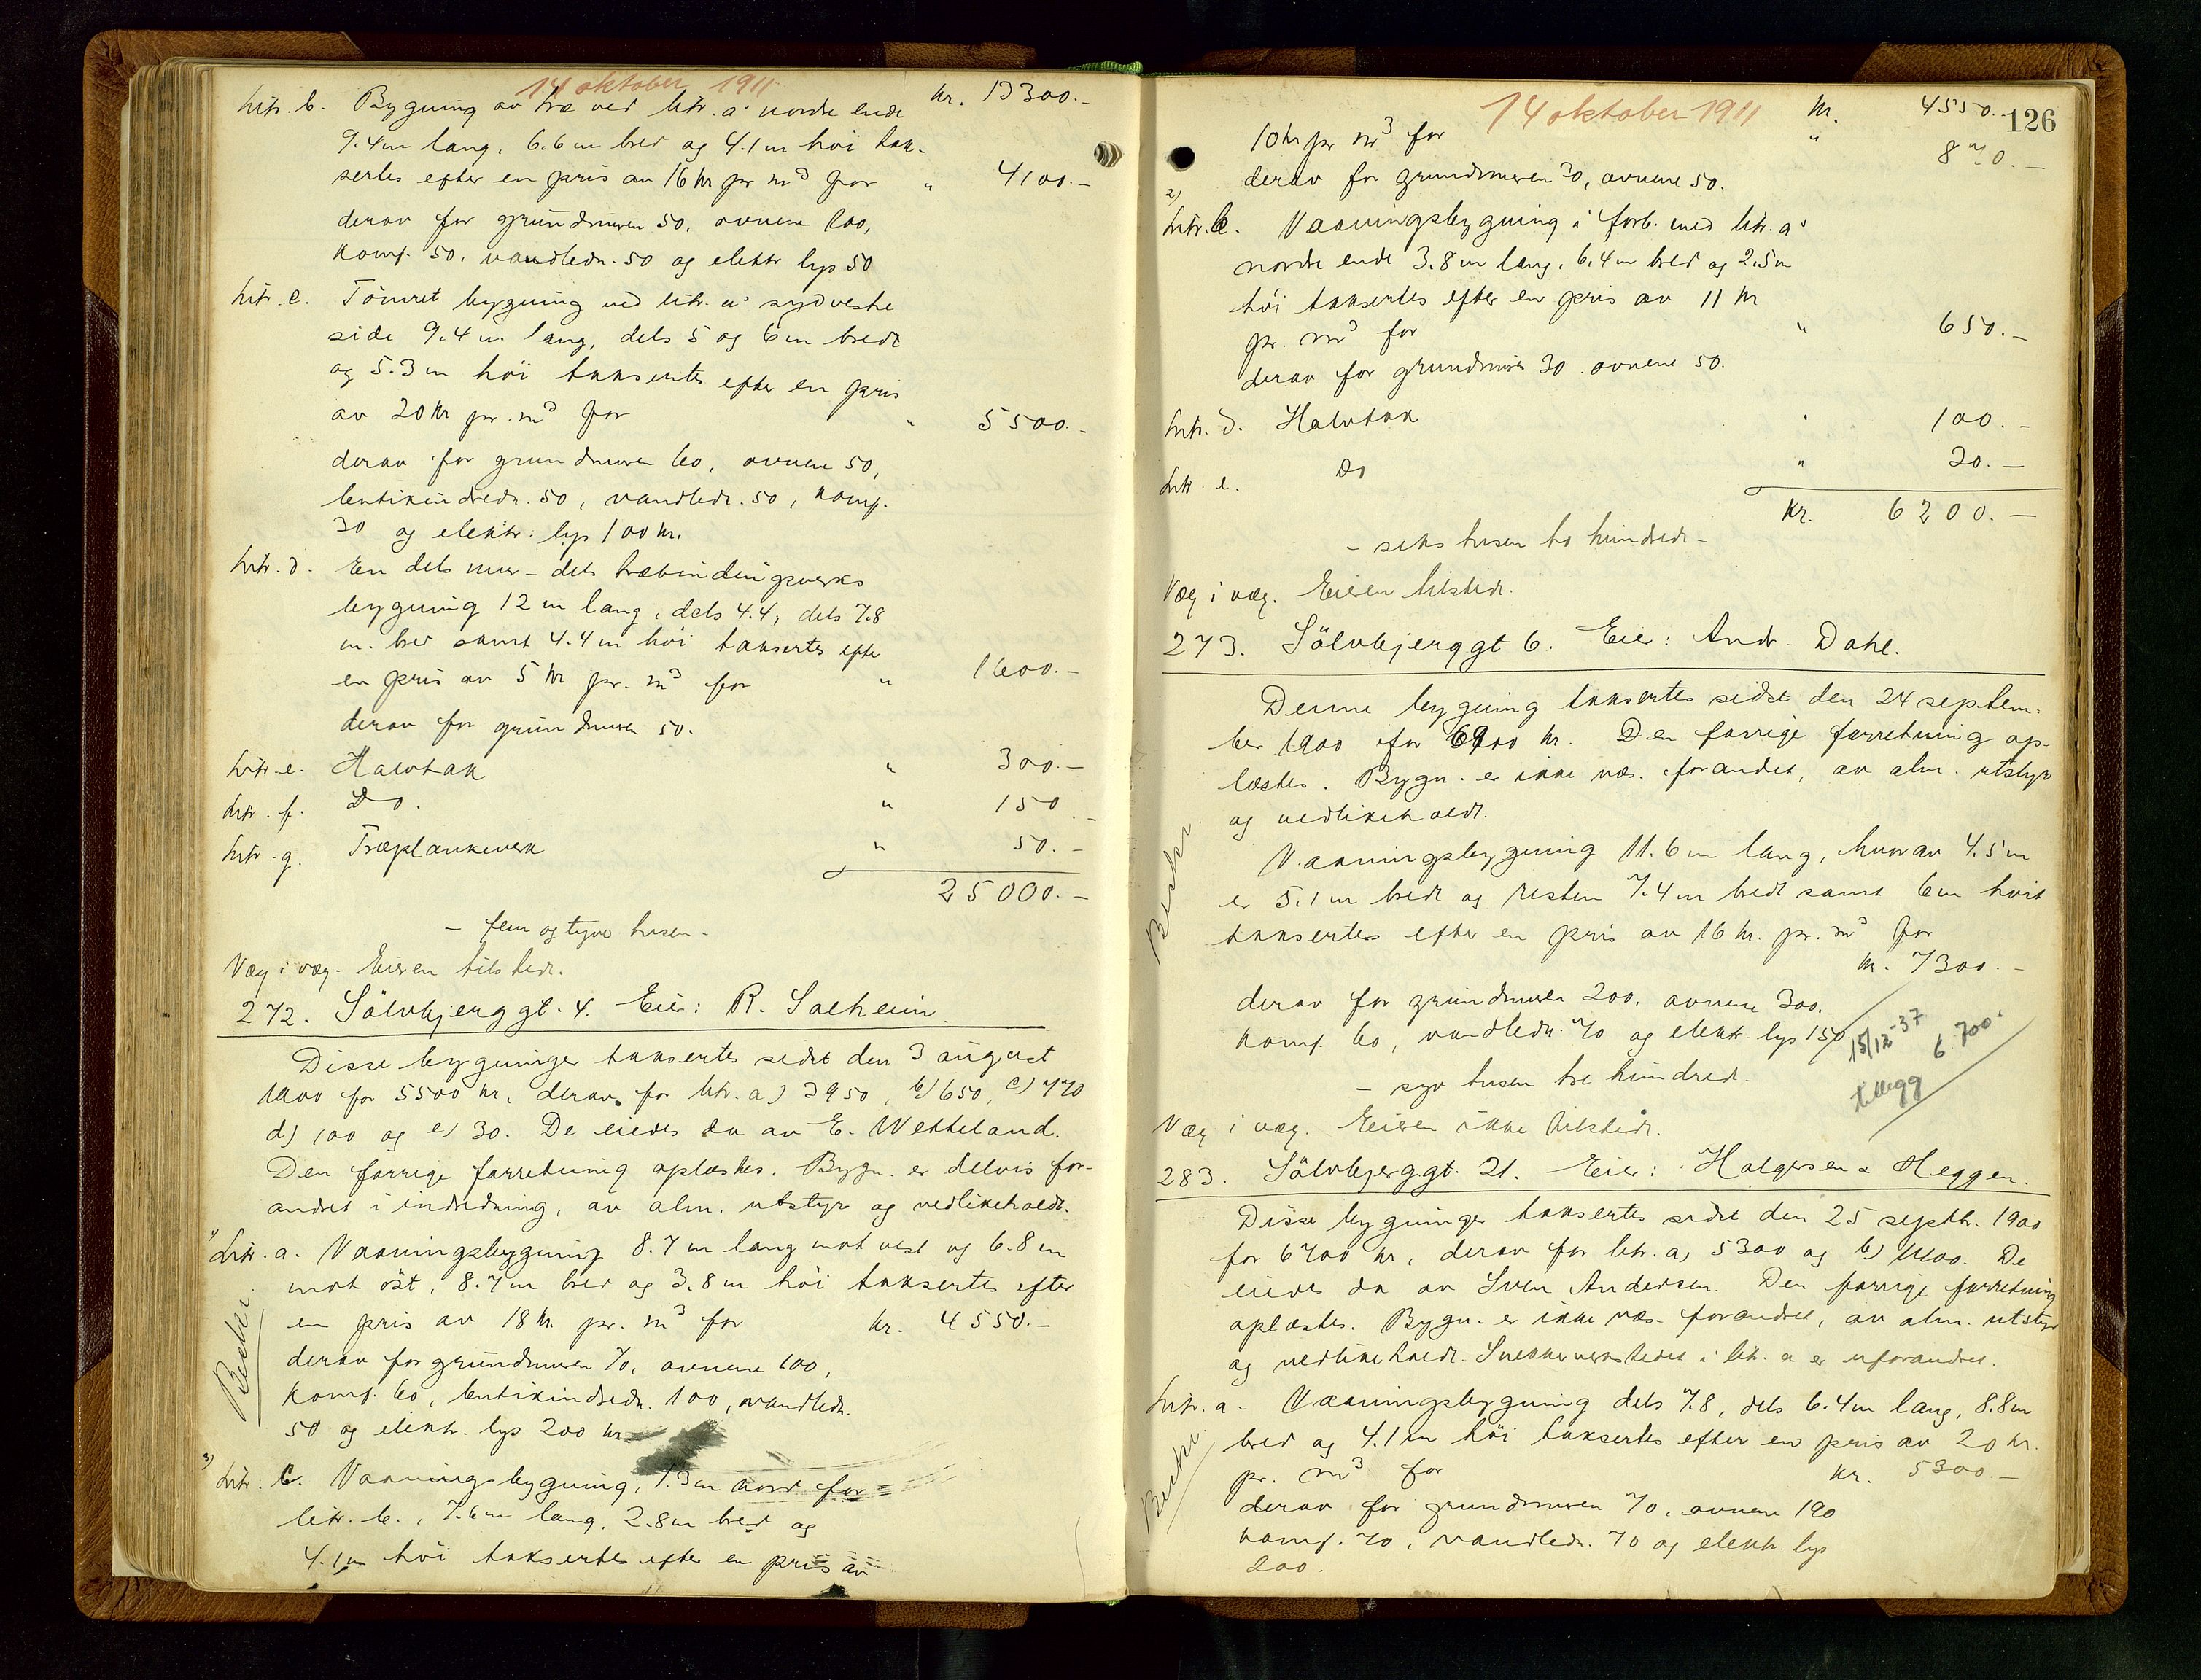 14 oktober 1911
kr. 13300.-
Litr. b. Bygning av træ ved litr. a's nordre ende
9.4 m lang, 6.6 m bred og 4.1 m höi tak-
sertes efter en pris av 16 kr pr m³ for " 4100.-
derav for grundmuren 50, ovnene 100,
komf. 50, vandledn. 50 og elektr lys 50
Litr. c. Tömret bygning ved litr. a's sydvestre
side 9.4 m lang, dels 5 og 6 m bred
og 5.3 m höi taksertes efter en pris
av 20 kr pr. m³ for " 5500.-
derav for grundmuren 60, ovnene 50,
butikindredn. 50, vandledn. 50, komf.
30 og elektr. lys 100 kr.
Litr. d. En dels mur- dels træbindingsverks
bygning 12 m lang, dels 4.4, dels 7.8
m. bred samt 4.4 m höi taksertes efter
en pris av 5 kr pr. m³ for " 1600.-
derav for grundmuren 50.
Litr. e. Halvtak " 300.-
Litr. f. Do. " 150.-
Litr. g. Træplankeverk " 50.-
25000.-
- fem og tyve tusen -
Væg i væg. Eieren tilstede.
272. Sölvbjerggt. 4. Eier: R. Solheim.
Disse bygninger taksertes sidst den 3 august
1900 for 5500 kr, derav for litr. a) 3950, b) 650, c) 770
d) 100 og e) 30. De eiedes da av E. Wetteland.
Den forrige forretning oplæstes. Bygn. er delvis for-
andret i indredning, av alm. utstyr og vedlikeholdt.
1) Litr. a. Vaaningsbygning 8.7 m lang mot vest og 6.8 m
mot öst, 8.7 m bred og 3.8 m höi taksertes efter
en pris av 18 kr. pr. m³ for kr. 4550.-
derav for grundmuren 70, ovnene 100,
komf. 60, butikindredn. 100, vandledn.
50 og elektr. lys 200 kr.
Beskr.
Litr. Vaaningsbygning, 1.3 m nord for
litr. b., 7.6 m lang, 2.8 m bred og
4.1 m höi taksertes efter en pris av
14 oktober 1911
126
kr. 4550.-
10 kr pr m³ for " 870.-
derav for grundmuren 30, ovnene 50.
2) Litr. Vaaningsbygning i forb. med litr. a's
nordre ende 3.8 m lang, 6.4 m bred og 2.5 m
höi taksertes efter en pris av 11 kr
pr. m³ for " 650.-
derav for grundmuren 30 ovnene 50.
Litr. d. Halvtak " 100.-
Litr. e. Do " 30.-
kr. 6200.-
- seks tusen to hundrede -
Væg i væg. Eieren tilstede.
273. Sölvbjerggt 6. Eier: Andr. Dahl.
Denne bygning taksertes sidst den 24 septem-
ber 1900 for 6900 kr. Den forrige forretning op-
læstes. Bygn. er ikke væs. forandret, av alm. utstyr
og vedlikeholdt.
Vaaningsbygning 11.6 m lang, hvorav 4.5 m
er 5.1 m bredt og resten 7.4 m bredt samt 6 m höit
taksertes efter en pris av 16 kr. pr. m³ for
kr. 7300.-
derav for grundmuren 200, ovnene 300,
komf. 60, vandledn. 70 og elektr. lys 150.
15/12-37 6.700.-
tillegg
- syv tusen tre hundrede -
Beskr.
Væg i væg. Eieren ikke tilstede.
283. Sölvbjerggt. 21. Eier: Holgersen & Heggen.
Disse bygninger taksertes sidst den 25 septbr. 1900
for 6700 kr, derav for litr. a) 5300 og b) 1400. De
eiedes da av Sven Andersen. Den forrige forretning
oplæstes. Bygn. er ikke væs. forandret, av alm. utstyr
og vedlikeholdt. Snekkerverkstedet i litr. a er uforandret.
Litr. a. Vaaningsbygning dels 7.8, dels 6.4 m lang, 8.8 m
bred og 4.1 m höi taksertes efter en pris av 20 kr.
pr. m³ for kr. 5300.-
derav for grundmuren 70, ovnene 190
komf. 70, vandledn. 70 og elektr. lys
200.
Beskr.